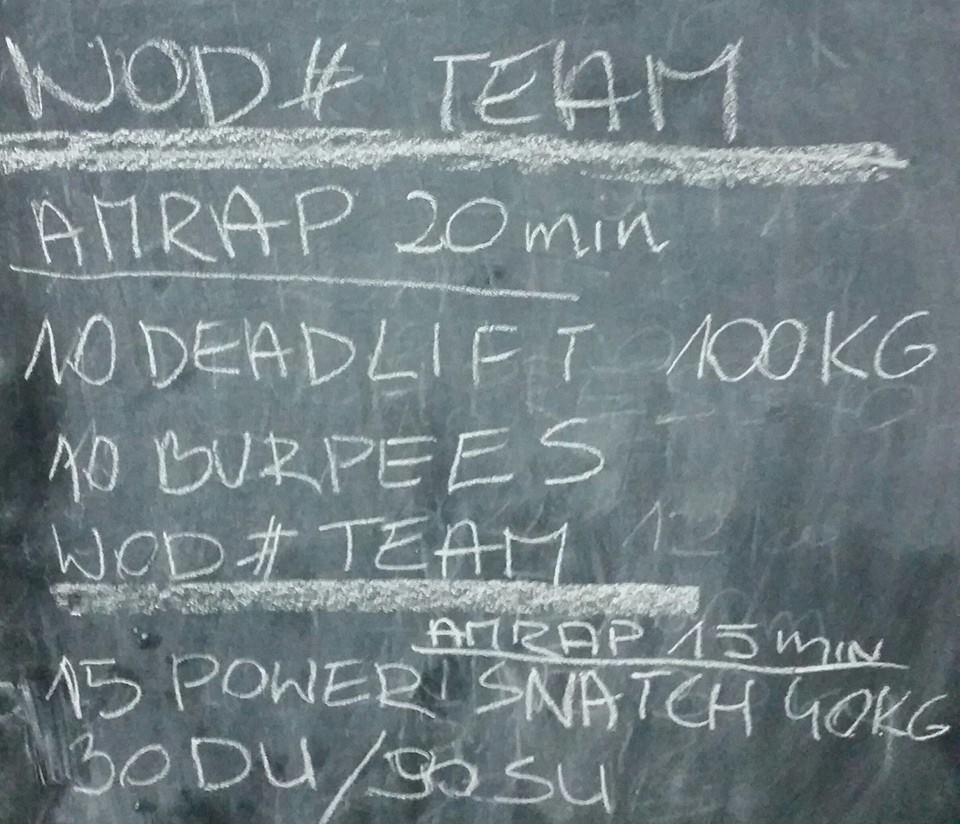 WOD# TEAM
AMRAP 20 min
10 DEADLIFT 100KG
10 BURPEES
WOD# TEAM
AMRAP 15 min
15 POWER SNATCH 40KG
30 DU/90 SU